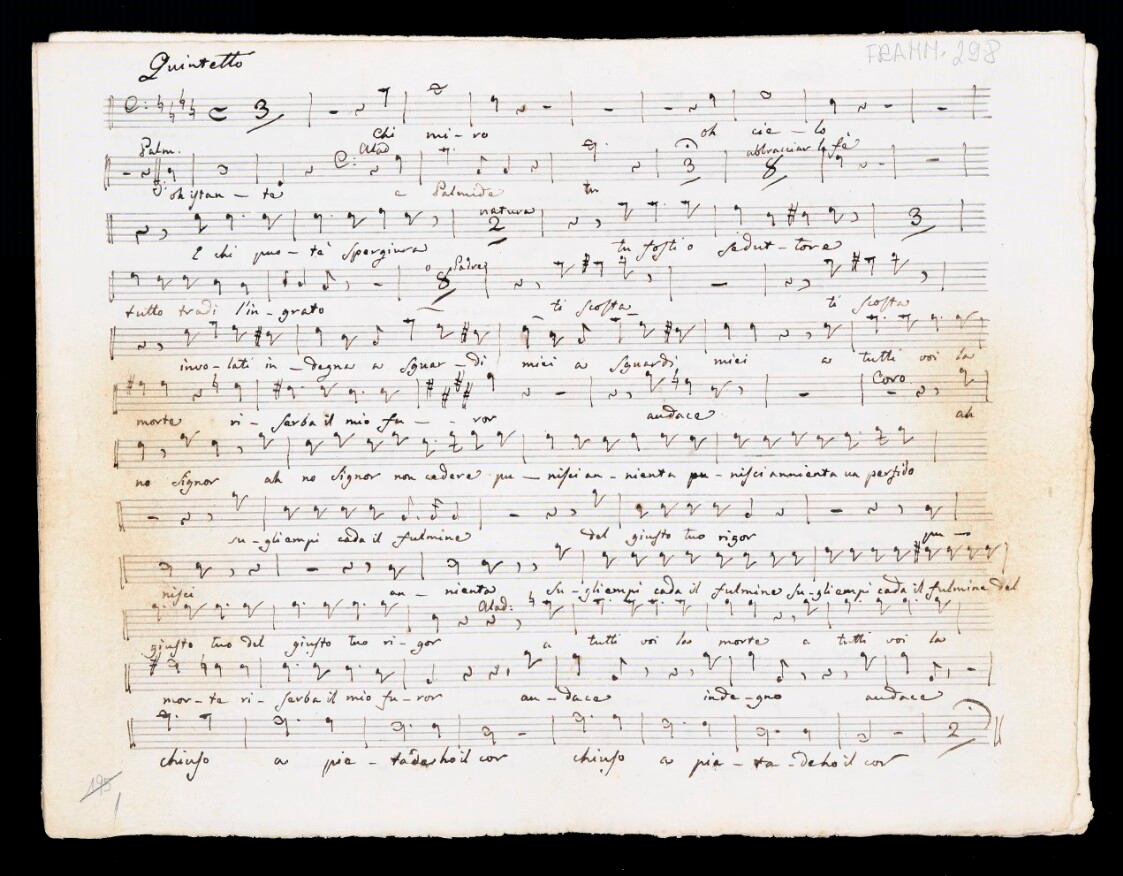 Quintetto
FRAMM. 298
3
Chi mi - ro oh cie - lo
Palm. Alad abbracciar la fè
3 8
oh istan - te e Palmide tu
natura
2 3
E chi puo - tè spergiura tu fosti o sedut - tore
o Padre
8
tutto tradì l'in - grato ti scosta ti scosta
invo - lati in - degna a sguar - di miei a sguardi miei a tutti voi la
Coro
morte ri - serba il mio fu - - ror audace ah
no signor ah no signor non cedere pu - nisci an - nienta pu - nisci annienta un perfido
su - gli empi cada il fulmine del giusto tuo rigor pu -
nisci an - nienta su - gli empi cada il fulmine su - gli empi cada il fulmine del
Alad:
giusto tuo del giusto tuo ri - gor a tutti voi la morte a tutti voi la
mor - te ri - serba il mio fu - ror au - dace inde - gno audace
2
chiuso a pie - tade ho il cor chiuso a pie - ta - de ho il cor
195
1